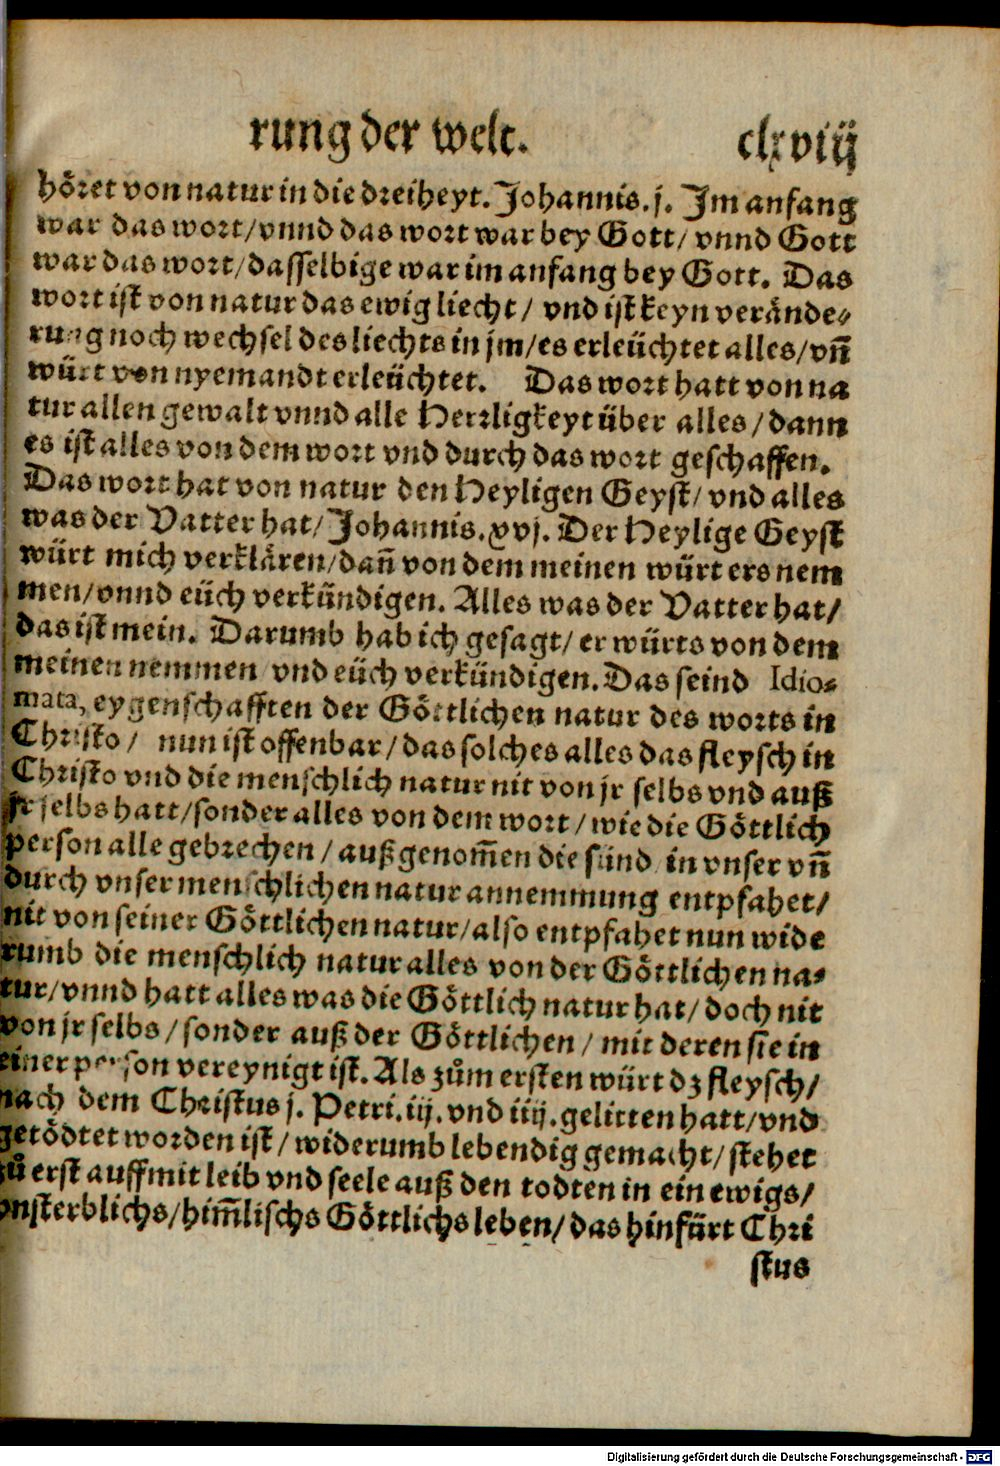 rung der welt. clxviij
höret von natur in die dreiheyt. Johannis. j. Jm anfang
war das wort/vnnd das wort war bey Gott/ vnnd Gott
war das wort/dasselbige war im anfang bey Gott. Das
wort ist von natur das ewig liecht/ vnd ist keyn verände⸗
rung noch wechsel des liechts in jm/es erleüchtet alles/vñ
würt von nyemandt erleüchtet. Das wort hatt von na
tur allen gewalt vnnd alle Herrligkeyt über alles/dann
es ist alles von dem wort vnd durch das wort geschaffen.
Das wort hat von natur den Heyligen Geyst/vnd alles
was der Vatter hat/Johannis. xvj. Der Heylige Geyst
würt mich verklären/dañ von dem meinen würt ers nem
men/vnnd eüch verkündigen. Alles was der Vatter hat/
das ist mein. Darumb hab ich gesagt/er würts von dem
meinen nemmen vnd eüch verkündigen. Das seind Idio⸗
mata, eygenschafften der Göttlichen natur des worts in
Christo/ nun ist offenbar/das solches alles das fleysch in
Christo vnd die menschlich natur nit von jr selbs vnd auß
jr selbs hatt/sonder alles von dem wort/wie die Göttlich
person alle gebrechen/außgenom̃en die sünd in vnser vñ
durch vnser menschlichen natur annemmung entpfahet/
nit von seiner Göttlichen natur/also entpfahet nun wide
rumb die menschlich natur alles von der Göttlichen na⸗
tur/vnnd hatt alles was die Göttlich natur hat/doch nit
von jr selbs/sonder auß der Göttlichen/mit deren sie in
einer person vereynigt ist. Als zům ersten würt dz fleysch/
nach dem Christus j. Petri. iij. vnd iiij. gelitten hatt/vnd
getödtet worden ist/widerumb lebendig gemacht/stehet
zů erst auff mit leib vnd seele auß den todten in ein ewigs/
vnsterblichs/him̃lischs Göttlichs leben/das hinfürt Chri
stus
Digitalisierung gefördert durch die Deutsche Forschungsgemeinschaft - DFG